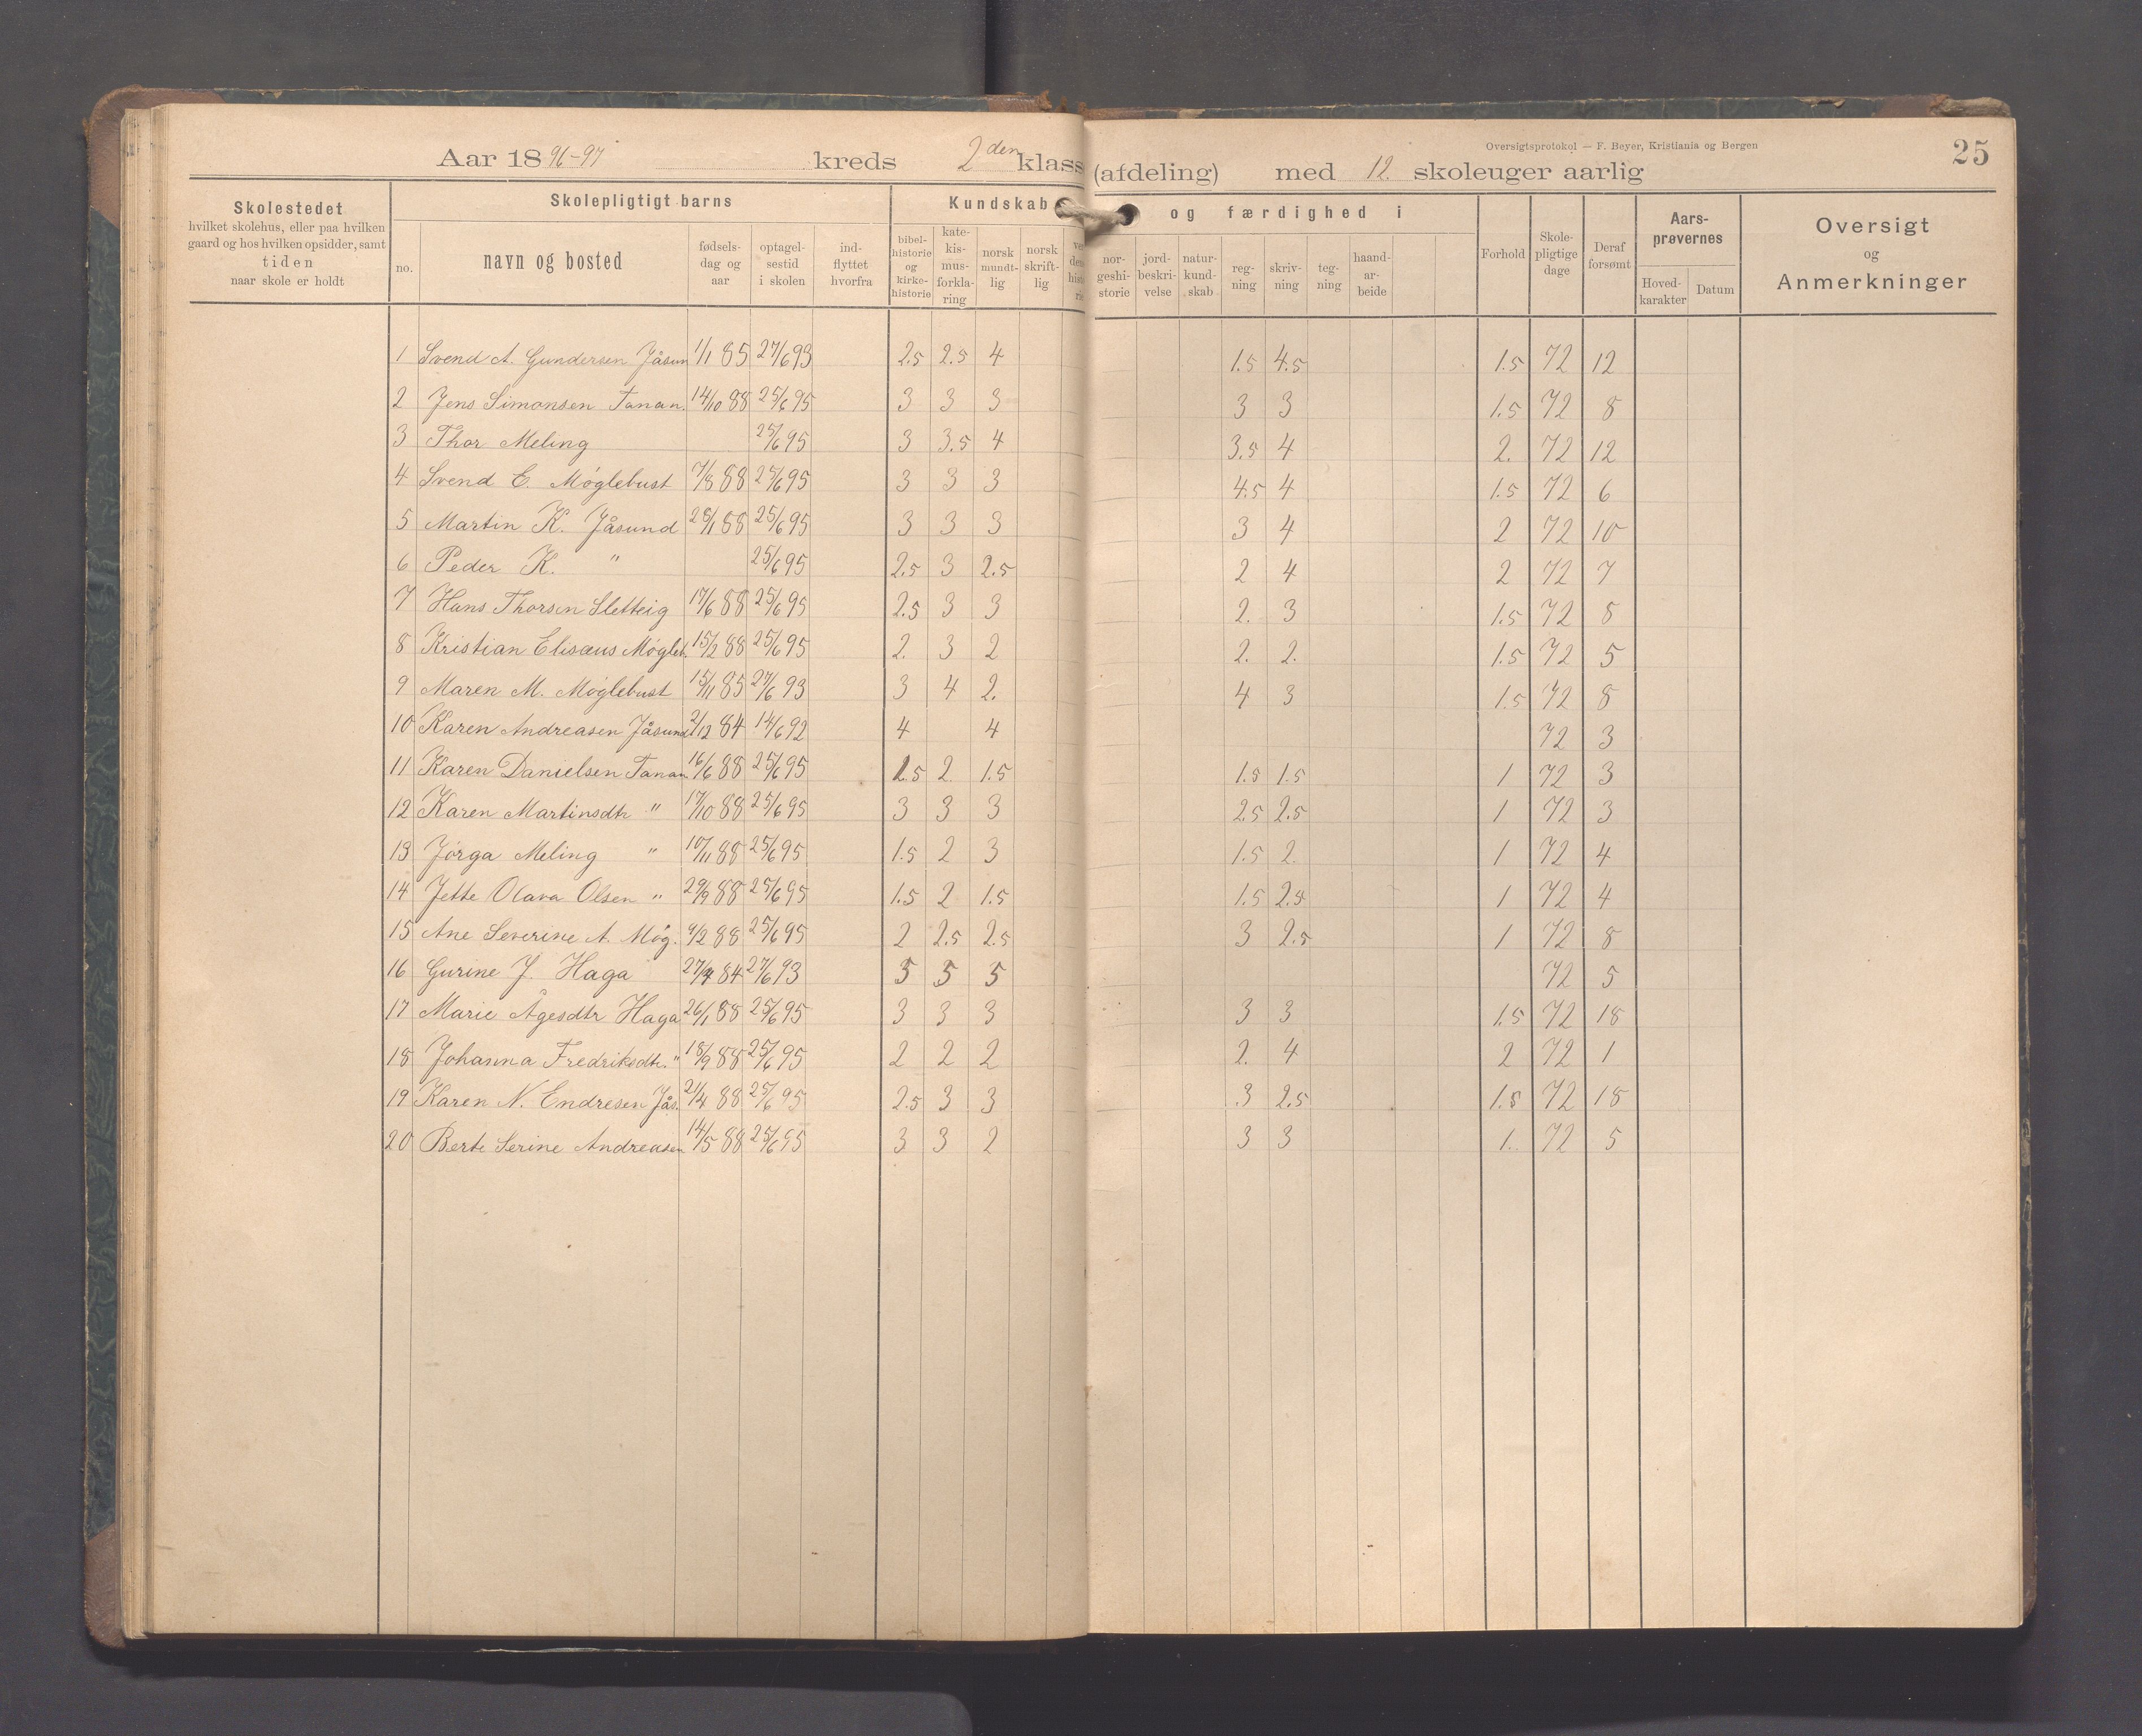 Oversigtsprotokol — F. Beyer, Kristiania og Bergen
25
Aar 1896-97 kreds 2den klasse (afdeling) med 12. skoleuger aarlig
Skolestedet
hvilket skolehus, eller paa hvilken
gaard og hos hvilken opsidder, samt
tiden
naar skole er holdt
Skolepligtigt barns
no.
navn og bosted
fødsels-
dag og
aar
optagel-
sestid
i skolen
ind-
flyttet
hvorfra
Kundskab og færdighed i
bibel-
historie
og
kirke-
historie
kate-
kis-
mus-
forkla-
ring
norsk
mundt-
lig
norsk
skrift-
lig
nor-
geshi-
storie
jord-
beskri-
velse
natur-
kund-
skab
reg-
ning
skriv-
ning
teg-
ning
haand-
ar-
beide
Forhold
Skole-
pligtige
dage
Deraf
forsømt
Aars-
prøvernes
Hoved-
karakter
Datum
Oversigt
og
Anmerkninger
1 Svend A. Gundersen Jåsun 1/1 85 27/6 93 2.5 2.5 4 1.5 4.5 1.5 72 12
2 Jens Simonsen Tanan. 14/10 88 25/6 95 3 3 3 3 3 1.5 72 8
3 Thor Meling 25/6 95 3 3.5 4 3.5 4 2. 72 12
4 Svend E. Møglebust 7/8 88 25/6 95 3 3 3 4.5 4 1.5 72 6
5 Martin K. Jåsund 28/1 88 25/6 95 3 3 3 3 4 2 72 10
6 Peder K. " 25/6 95 2.5 3 2.5 2 4 2 72 7
7 Hans Thorsen Sletteig 17/6 88 25/6 95 2.5 3 3 2. 3 1.5 72 8
8 Kristian Elisæus Mögleb. 15/2 88 25/6 95 2. 3 2 2. 2. 1.5 72 5
9 Maren M. Møglebust 15/11 85 27/6 93 3 4 2. 4 3 1.5 72 8
10 Karen Andreasen Jåsund 2/12 84 14/6 92 4 4 72 3
11 Karen Danielsen Tanan 16/6 88 25/6 95 2.5 2. 1.5 1.5 1.5 1 72 3
12 Karen Martinsdtr " 17/10 88 25/6 95 3 3 3 2.5 2.5 1 72 3
13 Jörga Meling " 10/11 88 25/6 95 1.5 2 3 1.5 2. 1 72 4
14 Jette Olava Olsen " 29/9 88 25/6 95 1.5 2 1.5 1.5 2.5 1 72 4
15 Ane Severine A. Møg. 9/2 88 25/6 95 2 2.5 2.5 3 2.5 1 72 8
16 Gurine J. Haga 27/4 84 27/6 93 5 5 5 72 5
17 Marie Ågesdtr Haga 26/1 88 25/6 95 3 3 3 3 3 1.5 72 18
18 Johanna Fredriksdtr. " 18/9 88 25/6 95 2 2 2 2. 4 2 72 1
19 Karen N. Endresen Jås. 21/4 88 25/6 95 2.5 3 3 3 2.5 1.5 72 18
20 Berte Serine Andreasen 14/5 88 25/6 95 3 3 2 3 3 1. 72 5